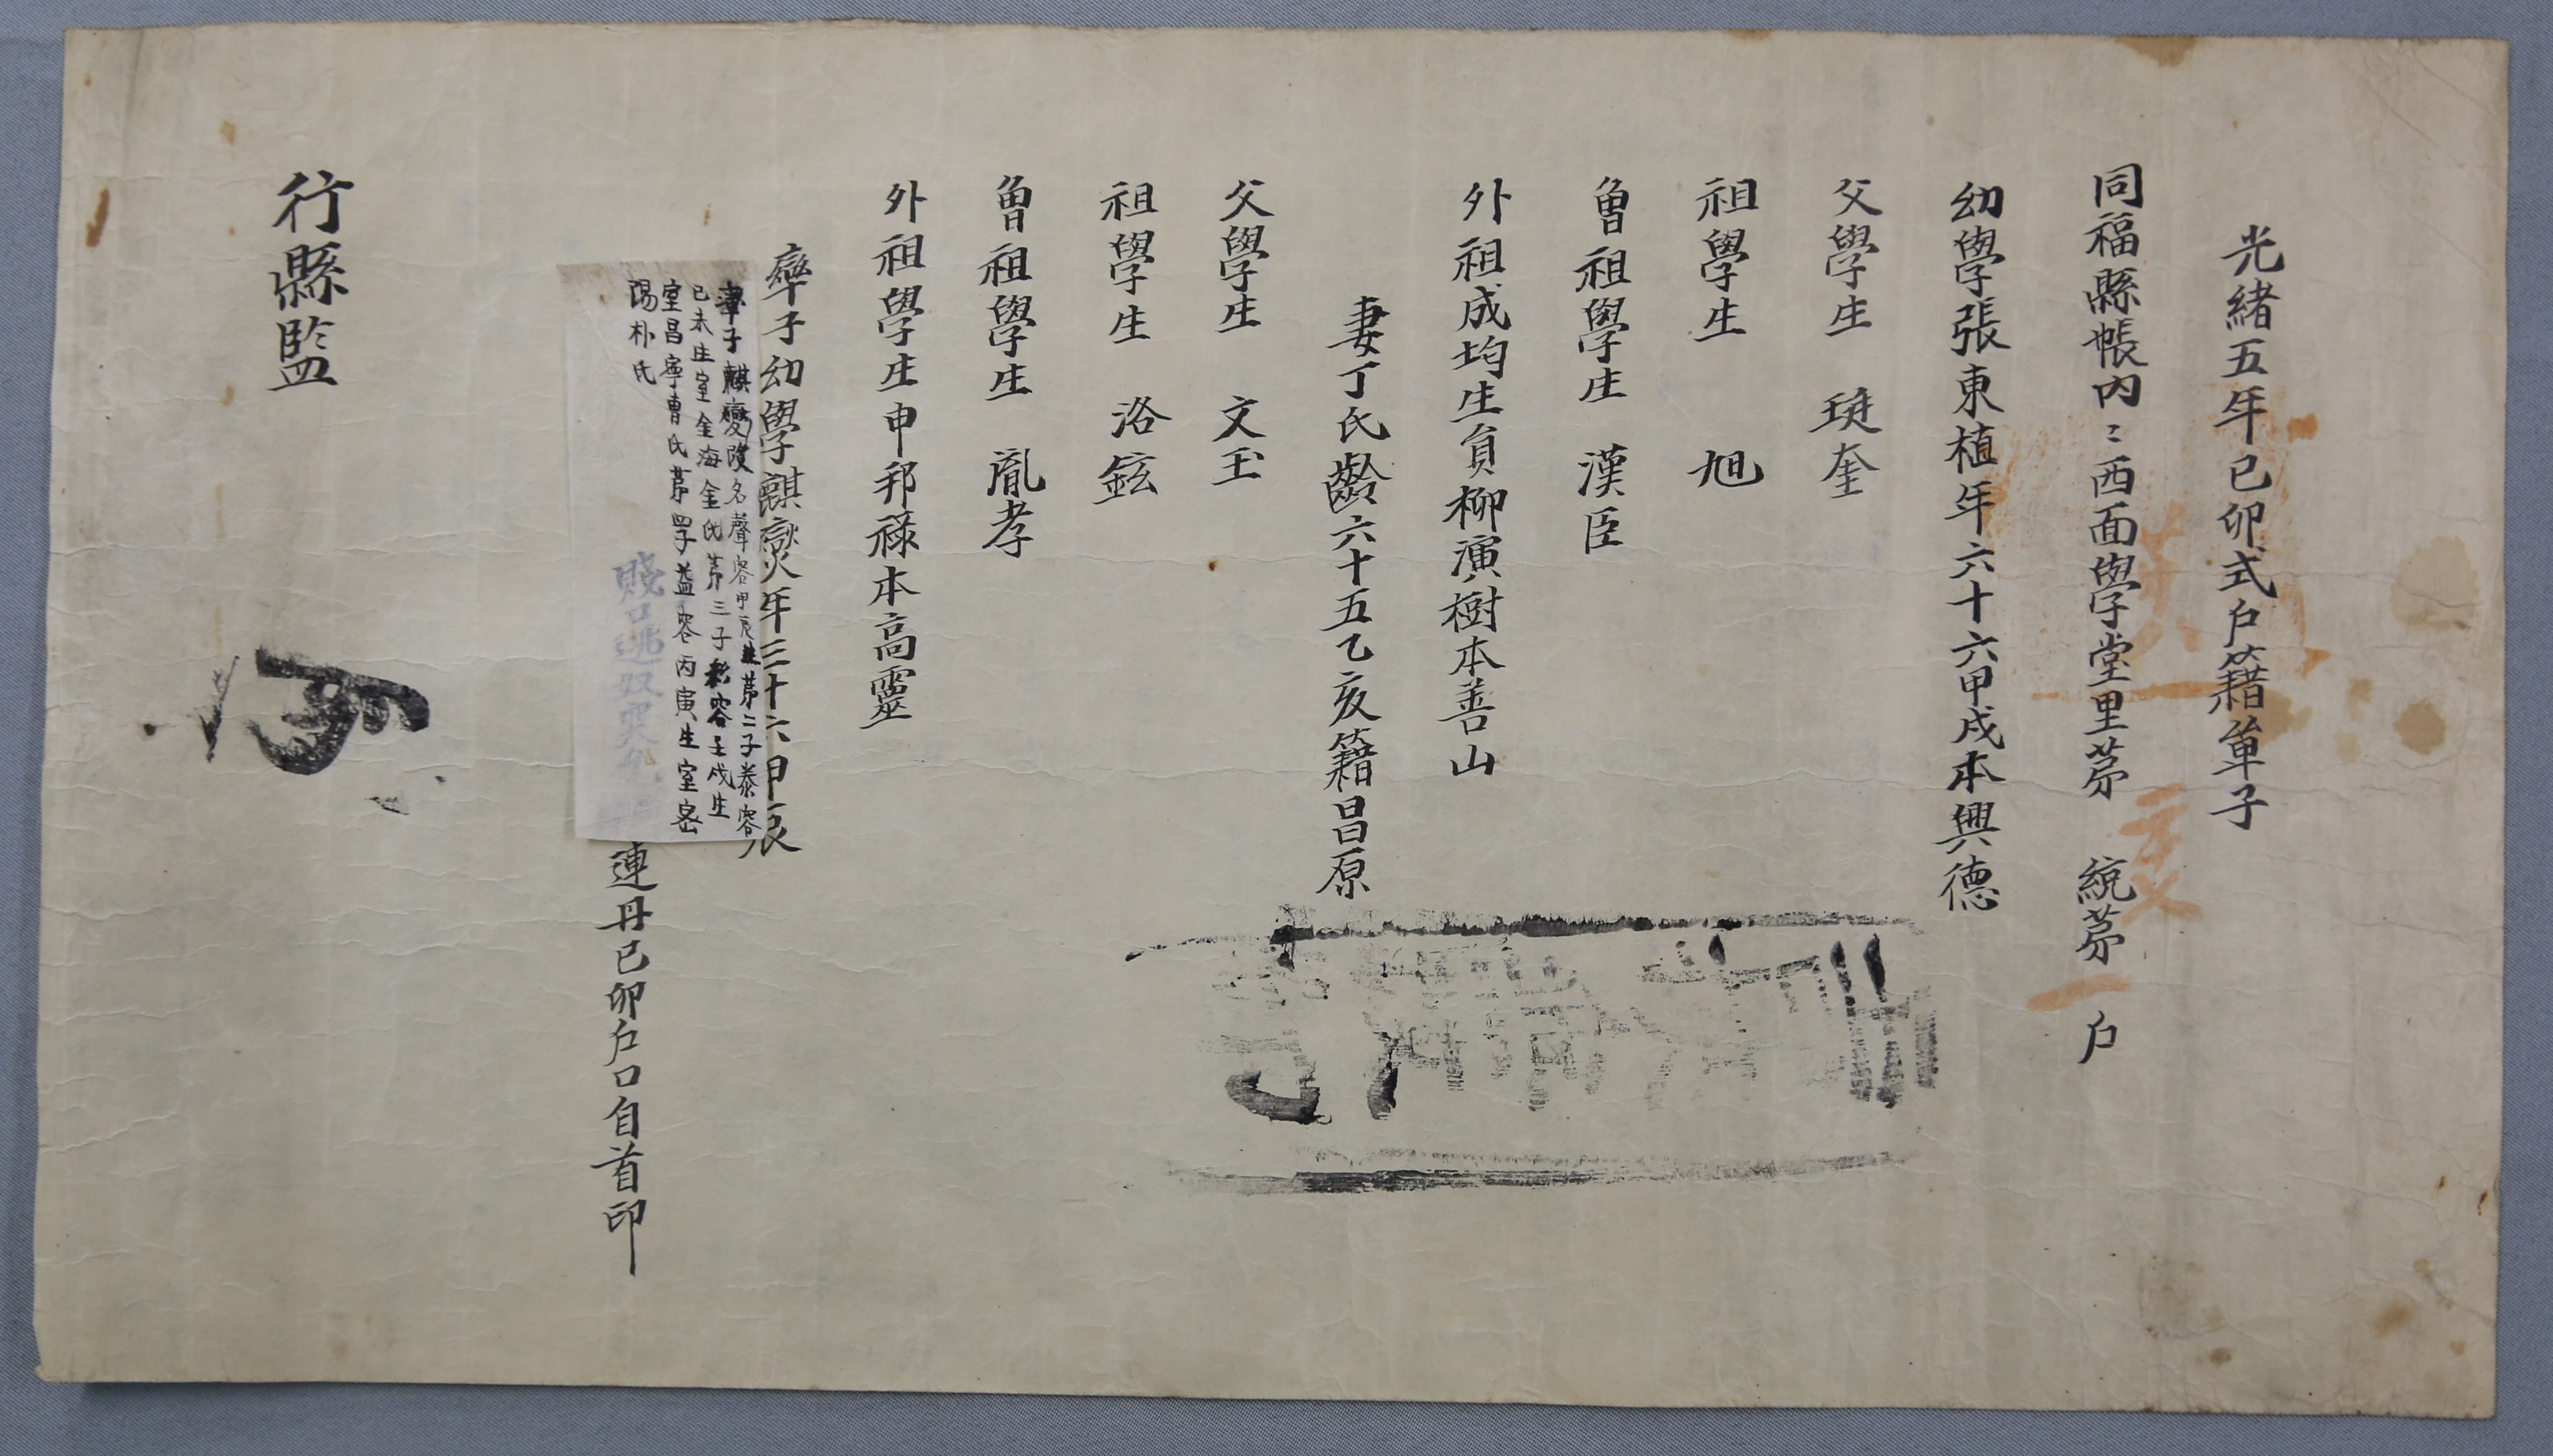 光緖五年己卯式戶籍單子
同福縣帳內〻西面學堂里苐 統苐一戶
幼學張東植年六十六甲戌本興德
父學生 珽奎
祖學生 旭
曾祖學生 漢臣
外祖成均生員柳演樹本善山
妻丁氏齡六十五乙亥籍昌原
父學生 文玉
祖學生 洛鉉
曾祖學生 胤孝
外祖學生申邦祿本高靈
率子幼學麒燮年三十六甲辰
率子麒燮改名聲容甲辰生苐二子泰容
己未生室金海金氏苐三子 容壬戌生
室昌寧曺氏苐四子益容丙寅生室密
陽朴氏
賤口逃奴 連丹己卯戶口自首印
行縣監